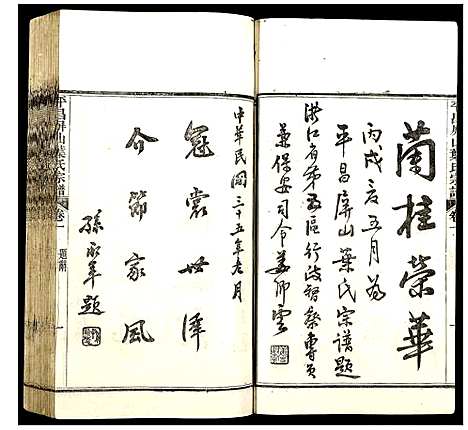 蘭桂榮華
丙戌夏五月為
平昌屏山葉氏宗譜題
浙江省第五區行政督察專員
兼保安司令
中華民國三十五年七月
冠裳世澤
介節家風
孫永年題
平昌屏山葉氏宗譜
卷一
題辭
一
平昌屏山葉氏宗譜
卷一